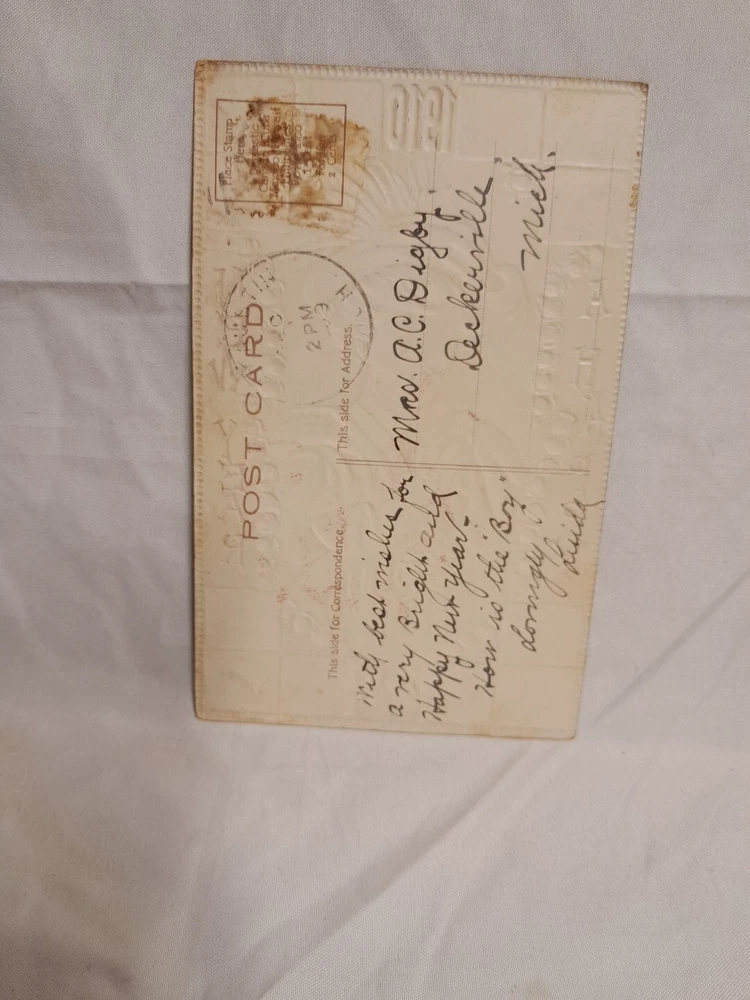 POST CARD
Place Stamp
Here
Domestic
2 Cents
2 PM
MICH
This side for Correspondence.
This side for Address.
With best wishes for
a very Bright and
Happy New Year—
How is the Boy"
Lovingly
Linida
Mrs. A.C. Digby,
Deckerville,
Mich.
1910